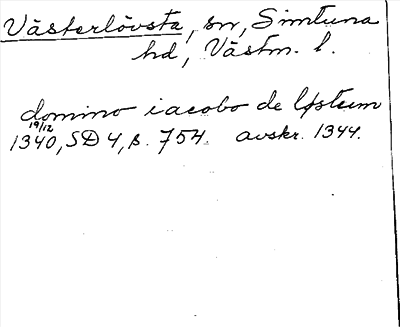 Västerlövsta, sn, Simtuna
hd, Västm. l.
domino iacobo de løstum
19/12
1340, SD 4, s. 754. avskr. 1344.